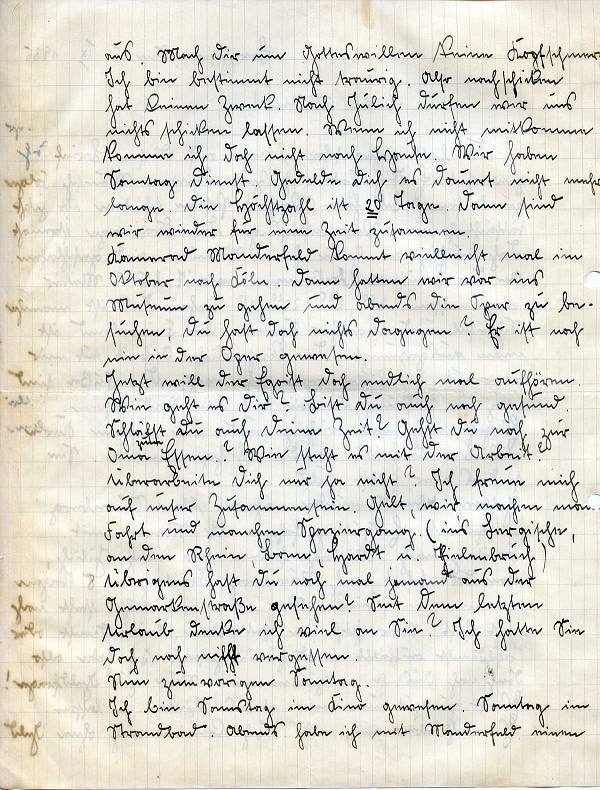 aus. Mach dir um Gotteswillen keine Kopfschmerz
Ich bin bestimmt nicht traurig. Also nachschicken
hat keinen Zweck. Nach Jülich dürfen wir uns
nichts schicken lassen. Wenn ich nicht mitkomme
komme ich doch nicht nach Hause. Wir haben
Sonntag Dienst. Gedulde dich es dauert nicht mehr
lange. Die Höchstzahl ist 20 Tage. Dann sind
wir wieder für eine Zeit zusammen.
Kamerad Manderfeld kommt vielleicht mal im
Oktober nach Köln. Dann hatten wir vor ins
Museum zu gehen und abends die Oper zu be-
suchen, du hast doch nichts dagegen? Er ist noch
nie in der Oper gewesen.
Jetzt will der Egoist doch endlich mal aufhören.
Wie geht es dir? Bist du auch noch gesund.
Schläfst du auch deine Zeit? Gehst du noch zur
Oma zum Essen.? Wie steht es mit der Arbeit?
Überarbeite dich nur ja nicht? Ich freue mich
auf unser Zusammensein. Gelt, wir machen man
Fahrt und manchen Spaziergang. (ins Bergische,
an den Rhein, Bonn, Hardt u. Thielenbruch)
Übrigens hast du noch mal jemand aus der
Gemarkenstraße gesehen? Seit dem letzten
Urlaub denke ich viel an Sie? Ich hatte Sie
doch noch nicht vergessen.
Nun zum vorigen Sonntag.
Ich bin Samstag im Kino gewesen. Sonntag im
Strandbad. Abends habe ich mit Manderfeld einen